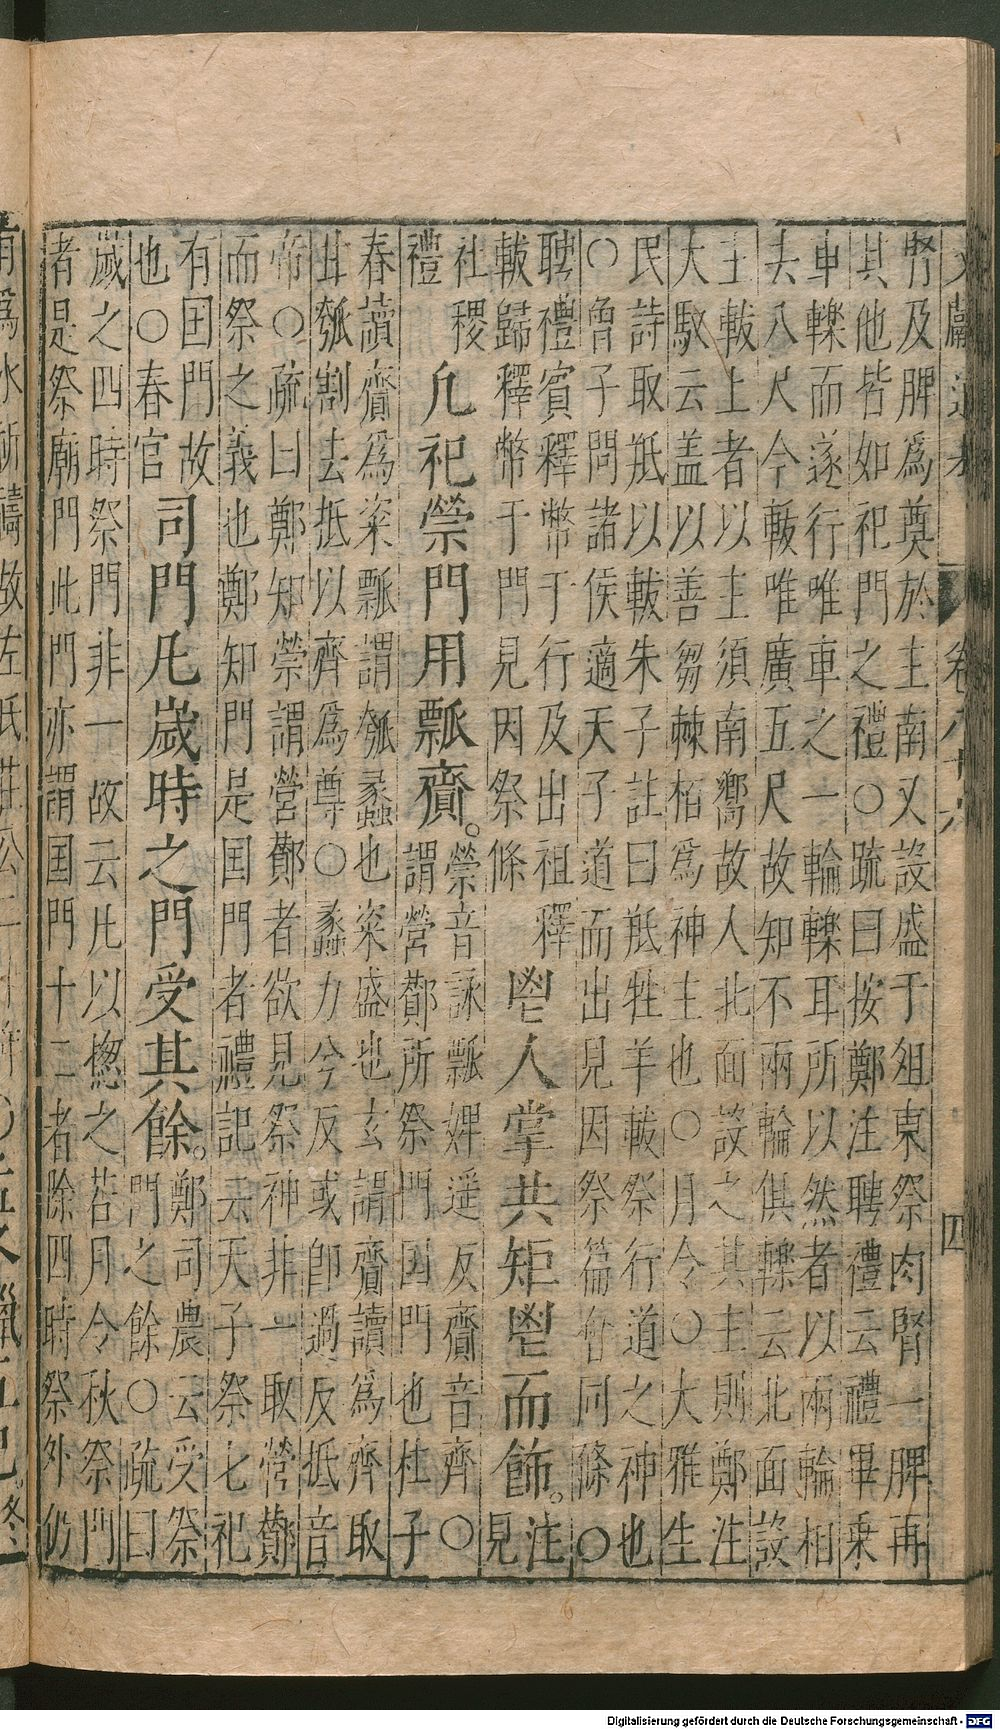 文獻通考 卷八十六 四
腎及脾爲奠於主南又設盛于俎東祭肉腎一脾再
其他皆如祀門之禮○疏曰按鄭注聘禮云禮畢乗
車轢而遂行唯車之一輪轢耳所以然者以兩輪相
去八尺今軷唯廣五尺故知不兩輪俱轢云北面設
主軷上者以主須南嚮故人北面設之其主則鄭注
大馭云盖以善芻棘栢爲神主也○月令○大雅生
民詩取羝以軷朱子註曰羝牲羊軷祭行道之神也
○曾子問諸侯適天子道而出見因祭篇告同條○
聘禮賓釋幣于行及出祖釋
軷歸釋幣于門見因祭條
鬯人掌共秬鬯而飾。
注
見
社稷
禮
凡祀禜門用瓢齎。
禜音詠瓢婢遥反齎音齊○
謂營酇所祭門国門也杜子
春讀齎爲粢瓢謂瓠蠡也粢盛也玄謂齎讀爲齊取
甘瓠割去抵以齊爲尊○蠡力兮反或郎過反抵音
帝○疏曰鄭知禜謂營酇者欲見祭神非一取營酇
而祭之義也鄭知門是国門者禮記云天子祭七祀
有国門故
也○春官
司門凡歲時之門受其餘。
鄭司農云受祭
門之餘○疏曰
歲之四時祭門非一故云凡以揔之若月令秋祭門
者是祭廟門此門亦謂国門十二者除四時祭外仍
有爲水祈禱故左氏莊公二十
Digitalisierung gefördert durch die Deutsche Forschungsgemeinschaft - DFG